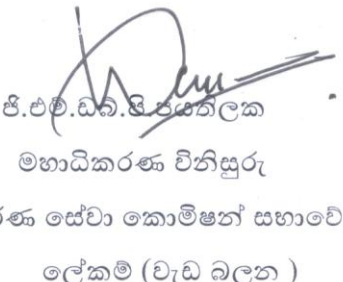 ජී.එම්.ඩබ්.පී.ජයතිලක
මහාධිකරණ විනිසුරු
රණ සේවා කොමිෂන් සභාවේ
ලේකම් (වැඩ බලන )